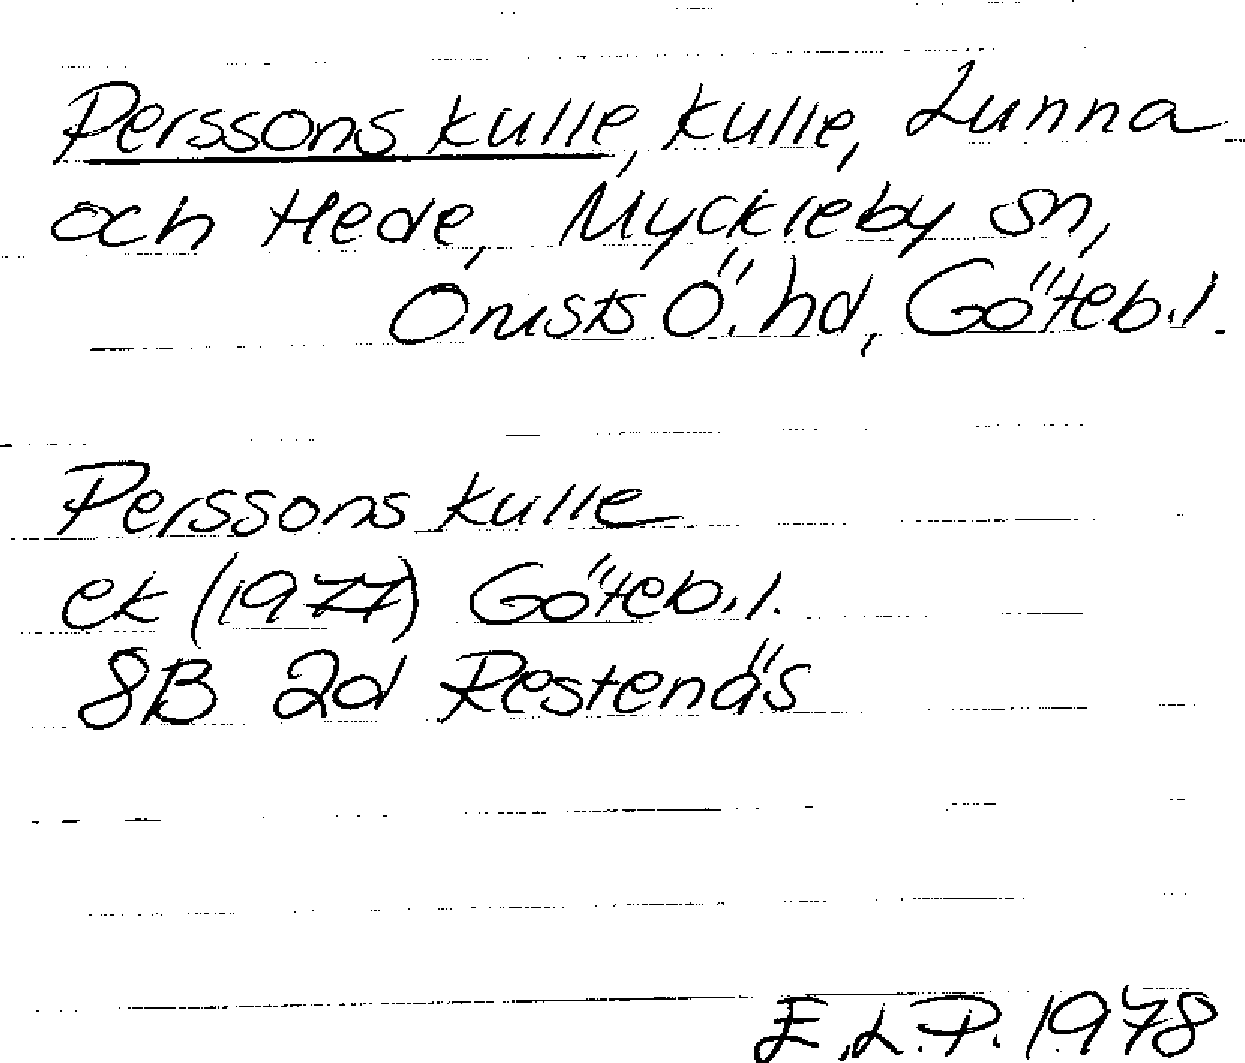 Perssons kulle, kulle, Lunna
och Hede, Myckleby sn,
Orusts Ö. hd, Göteb.l.
Perssons kulle
ek (1977) Göteb.l.
8B 2d Restenäs
E.L.P. 1978